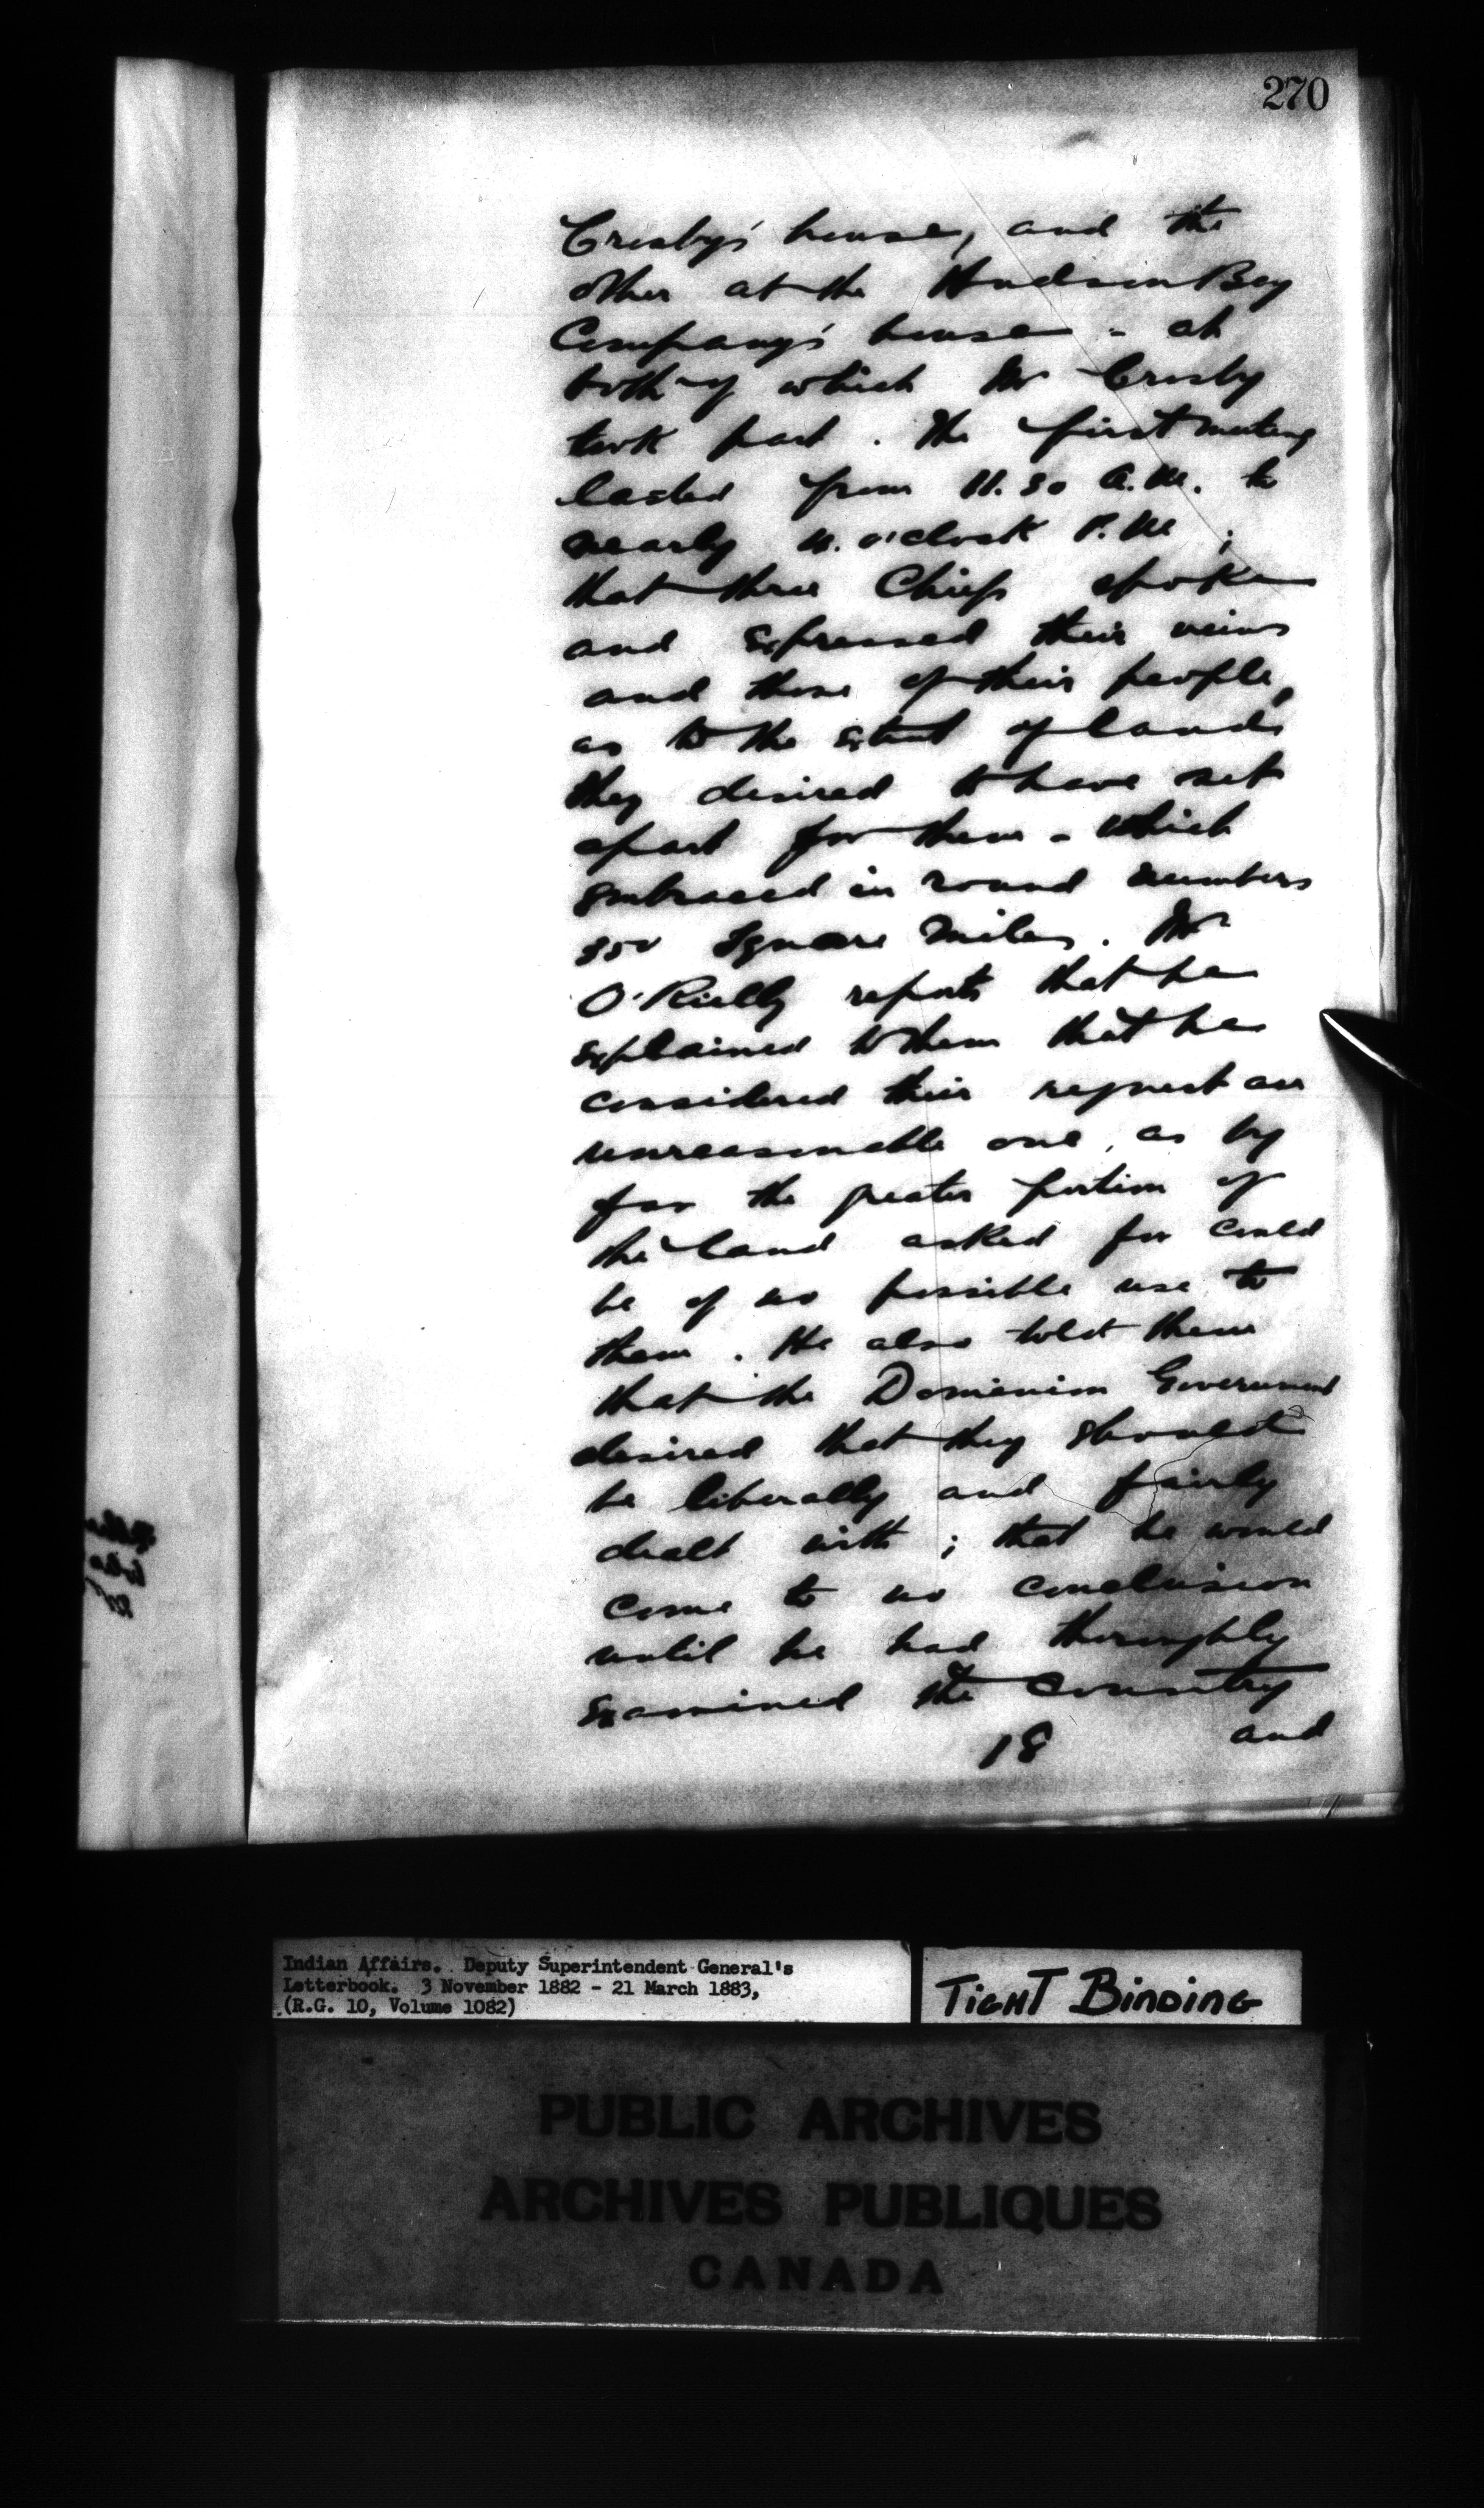 270
Crosby's house, and the
other at the Hudson Bay
Company's house - at
both of which Mr Crosby
took part. The first meeting
lasted from 11.30 A.M. to
nearly 4. o'clock P.M ;
that three Chiefs spoke
and expressed their veiws
and those of their people,
as to the extent of lands
they desired to have set
apart for them - which
embraced in round numbers
350 Square Miles. Mr
O'Rielly reports that he
explained to them that he
considered their request an
unreasonable one, as by
far the greater portion of
the land asked for could
be of no possible use to
them. He also told them
that the Dominion Government
desired that they should
be liberally and fairly
dealt with ; that he would
come to no conclusion
until he had thoroughly
examined the country
18 and
Indian Affairs. Deputy Superintendent General's
Letterbook. 3 November 1882 - 21 March 1883,
(R.G. 10, Volume 1082)
TIGHT BINDING
PUBLIC ARCHIVES
ARCHIVES PUBLIQUES
CANADA